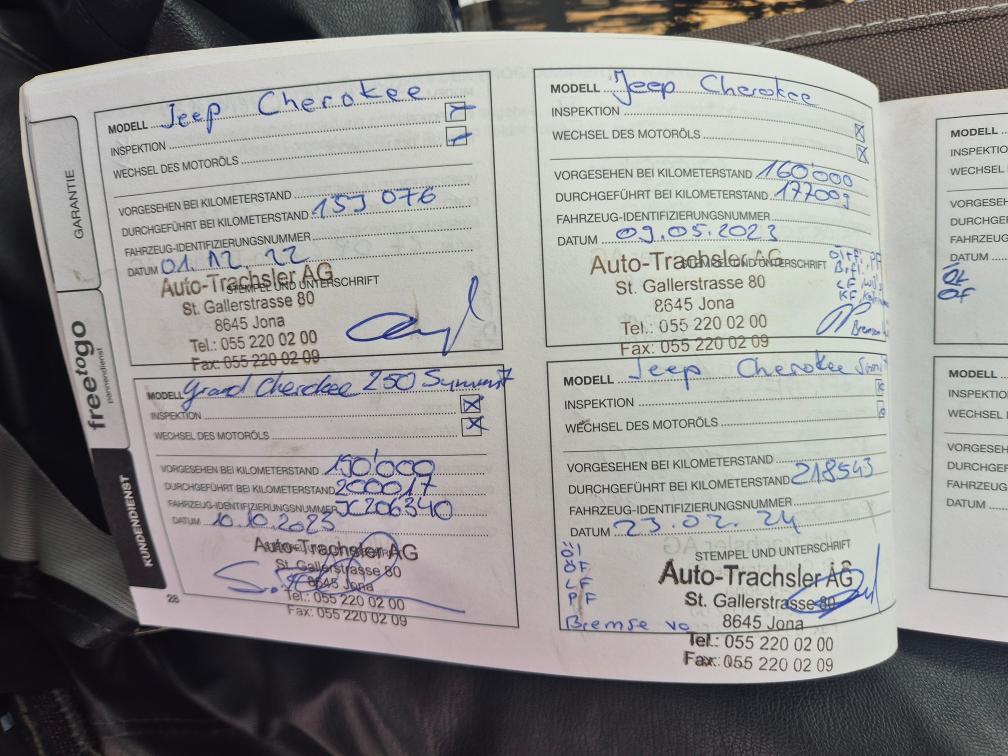 GARANTIE
freetogo
pannendienst
KUNDENDIENST
28
MODELL Jeep Cherokee
INSPEKTION
WECHSEL DES MOTORÖLS
VORGESEHEN BEI KILOMETERSTAND
DURCHGEFÜHRT BEI KILOMETERSTAND
FAHRZEUG-IDENTIFIZIERUNGSNUMMER
DATUM 01.12.22
STEMPEL UND UNTERSCHRIFT
Auto-Trachsler AG
St. Gallerstrasse 80
8645 Jona
Tel.: 055 220 02 00
Fax: 055 220 02 09
MODELL Grand Cherokee 250 Summit
INSPEKTION
WECHSEL DES MOTORÖLS
VORGESEHEN BEI KILOMETERSTAND 190'000
DURCHGEFÜHRT BEI KILOMETERSTAND 200017
FAHRZEUG-IDENTIFIZIERUNGSNUMMER JC206340
DATUM 10.10.2023
Auto-Trachsler AG
St. Gallerstrasse 80
8645 Jona
Tel.: 055 220 02 00
Fax: 055 220 02 09
MODELL Jeep Cherokee
INSPEKTION
WECHSEL DES MOTORÖLS
VORGESEHEN BEI KILOMETERSTAND 160'000
DURCHGEFÜHRT BEI KILOMETERSTAND 177009
FAHRZEUG-IDENTIFIZIERUNGSNUMMER
DATUM 09.05.2023
STEMPEL UND UNTERSCHRIFT
Auto-Trachsler AG
St. Gallerstrasse 80
8645 Jona
Tel.: 055 220 02 00
Fax: 055 220 02 09
MODELL Jeep Cherokee
INSPEKTION
WECHSEL DES MOTORÖLS
VORGESEHEN BEI KILOMETERSTAND
DURCHGEFÜHRT BEI KILOMETERSTAND 218543
FAHRZEUG-IDENTIFIZIERUNGSNUMMER
DATUM 23.02.24
STEMPEL UND UNTERSCHRIFT
Öl
ÖF
LF
PF
Bremse vo
Auto-Trachsler AG
St. Gallerstrasse 80
8645 Jona
Tel.: 055 220 02 00
Fax: 055 220 02 09
MODELL
WECHSEL
DATUM
ÖL
ÖF
MODELL
WECHSEL
DATUM